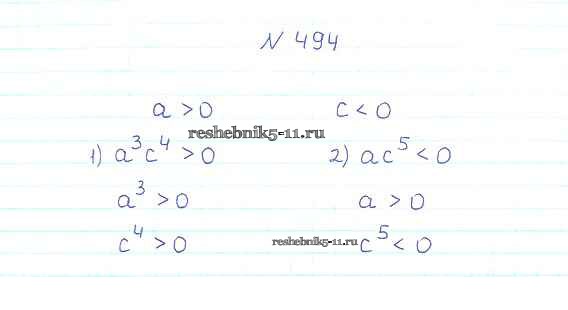 N 494
a > 0 c < 0
reshebnik5-11.ru
1) a³c⁴ > 0 2) ac⁵ < 0
a³ > 0 a > 0
c⁴ > 0 reshebnik5-11.ru c⁵ < 0